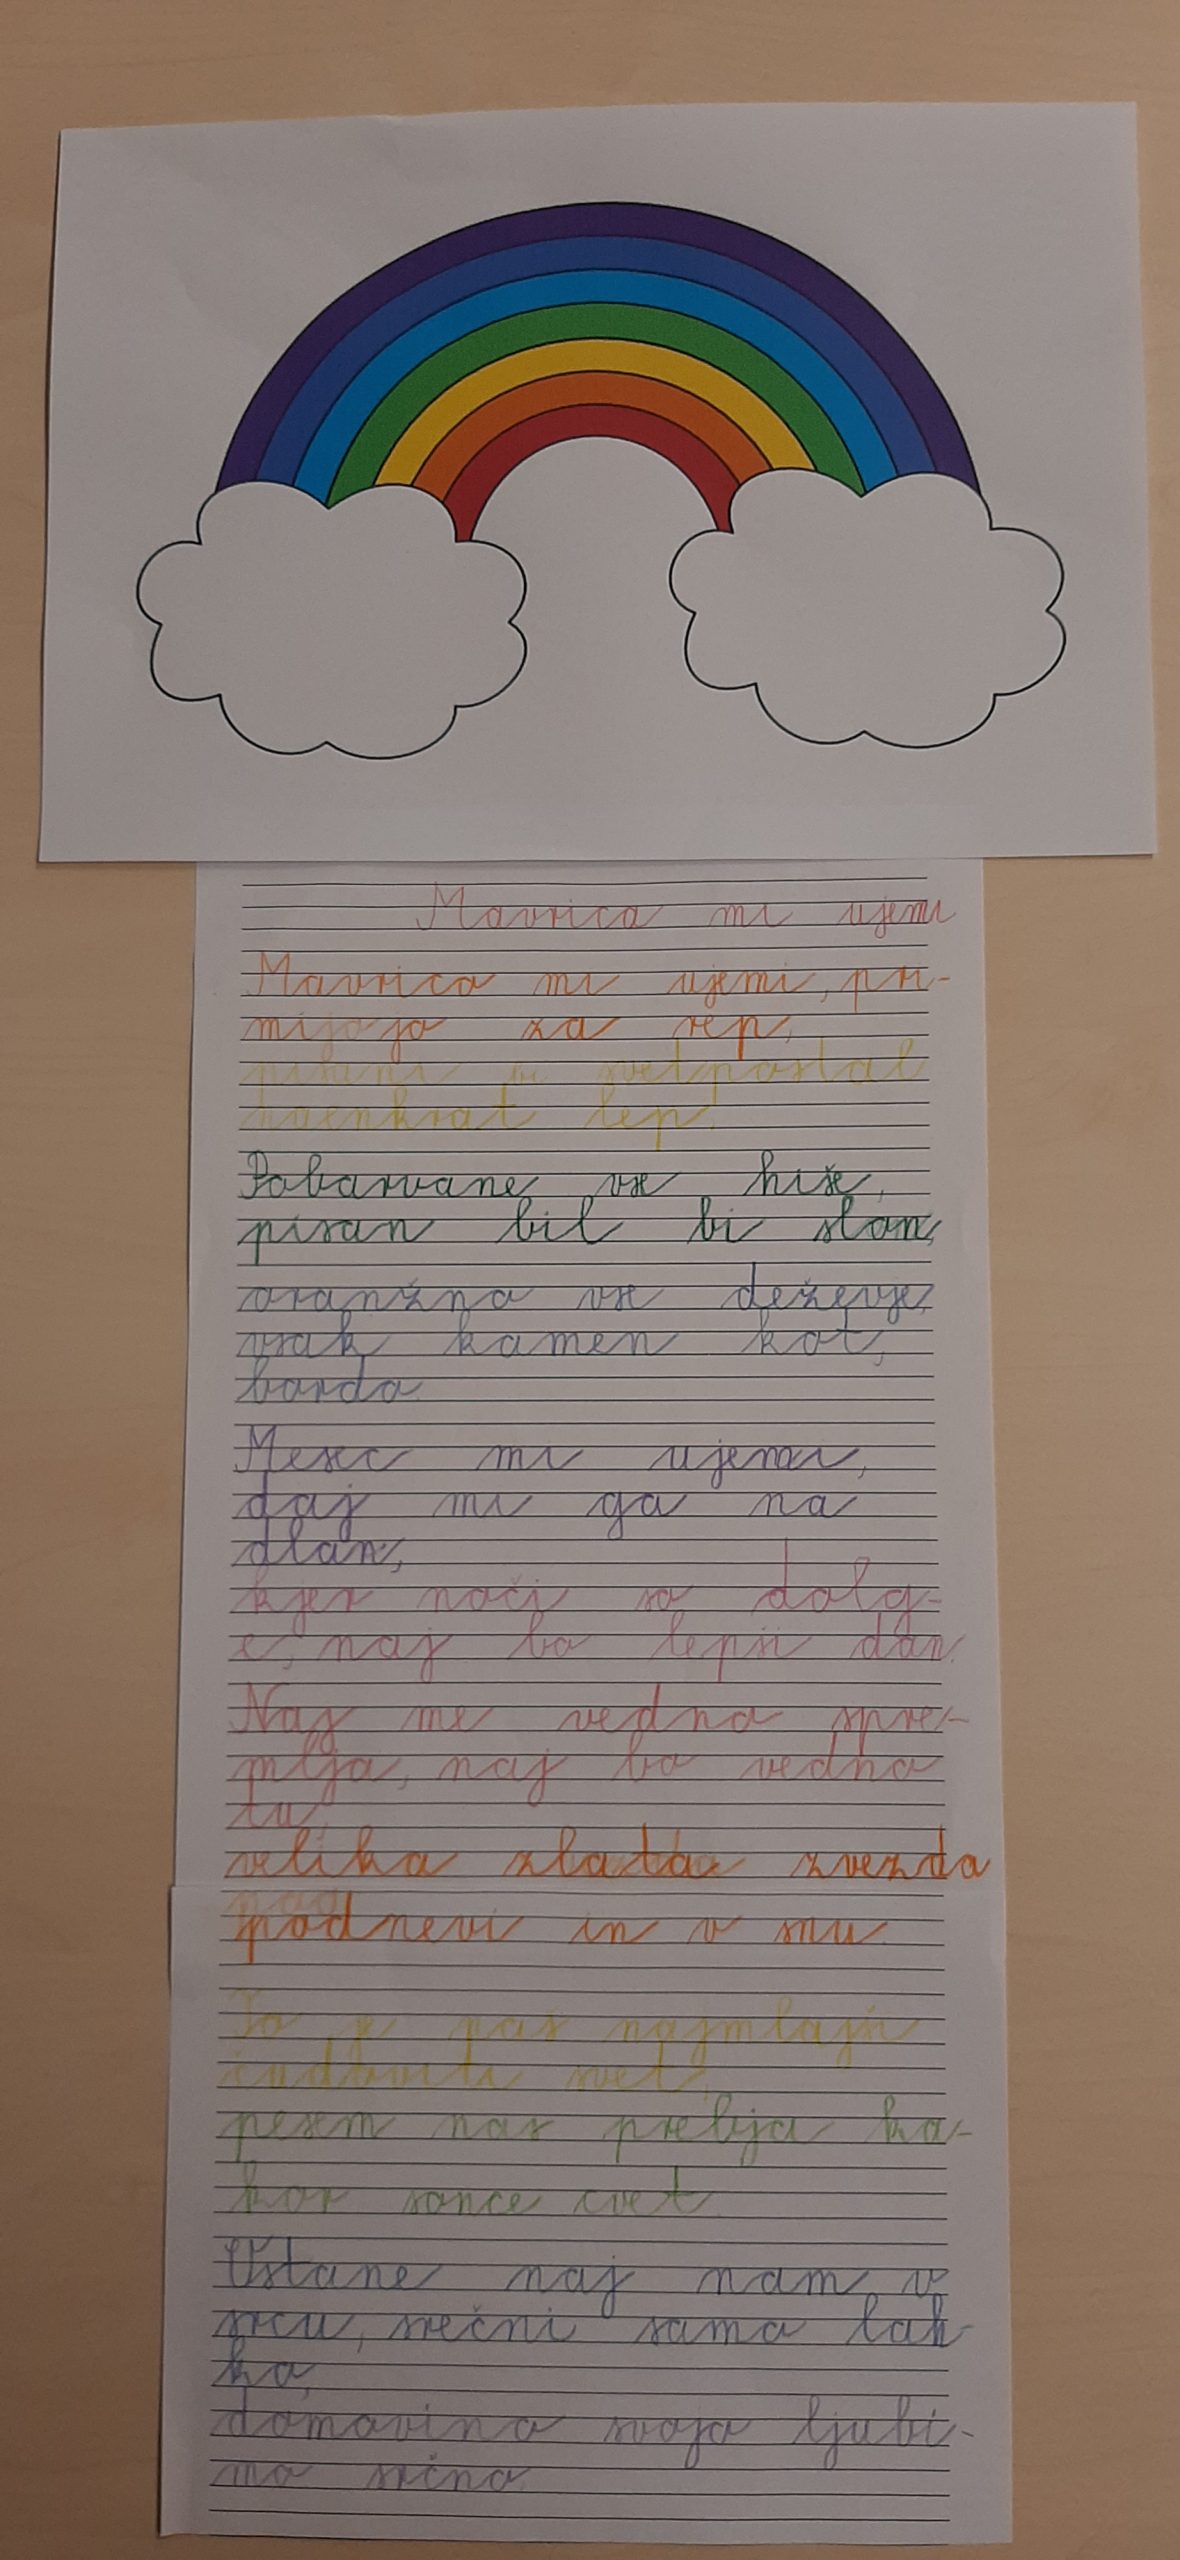 Mavrico mi ujemi
Mavrico mi ujemi, pri-
mijojo za rep,
pisani bi svet postal
naenkrat lep!
Pobarvane vse hiše,
pisan bil bi slon,
oranžno vse deževje,
vsak kamen kot,
barda.
Mesec mi ujemi,
daj mi ga na
dlan,
kjer noči so dolg-
e, naj bo lepši dan.
Naj me vedno spre-
mlja, naj bo vedno
tu,
velika zlata zvezda
podnevi in v snu.
To je naš najmlajši
čudoviti svet,
pesem nas prebja ka-
kor sonce cvet.
Ostane naj nam v
srcu, srečni samo lah-
ko,
domovino svojo ljubi-
mo srčno.